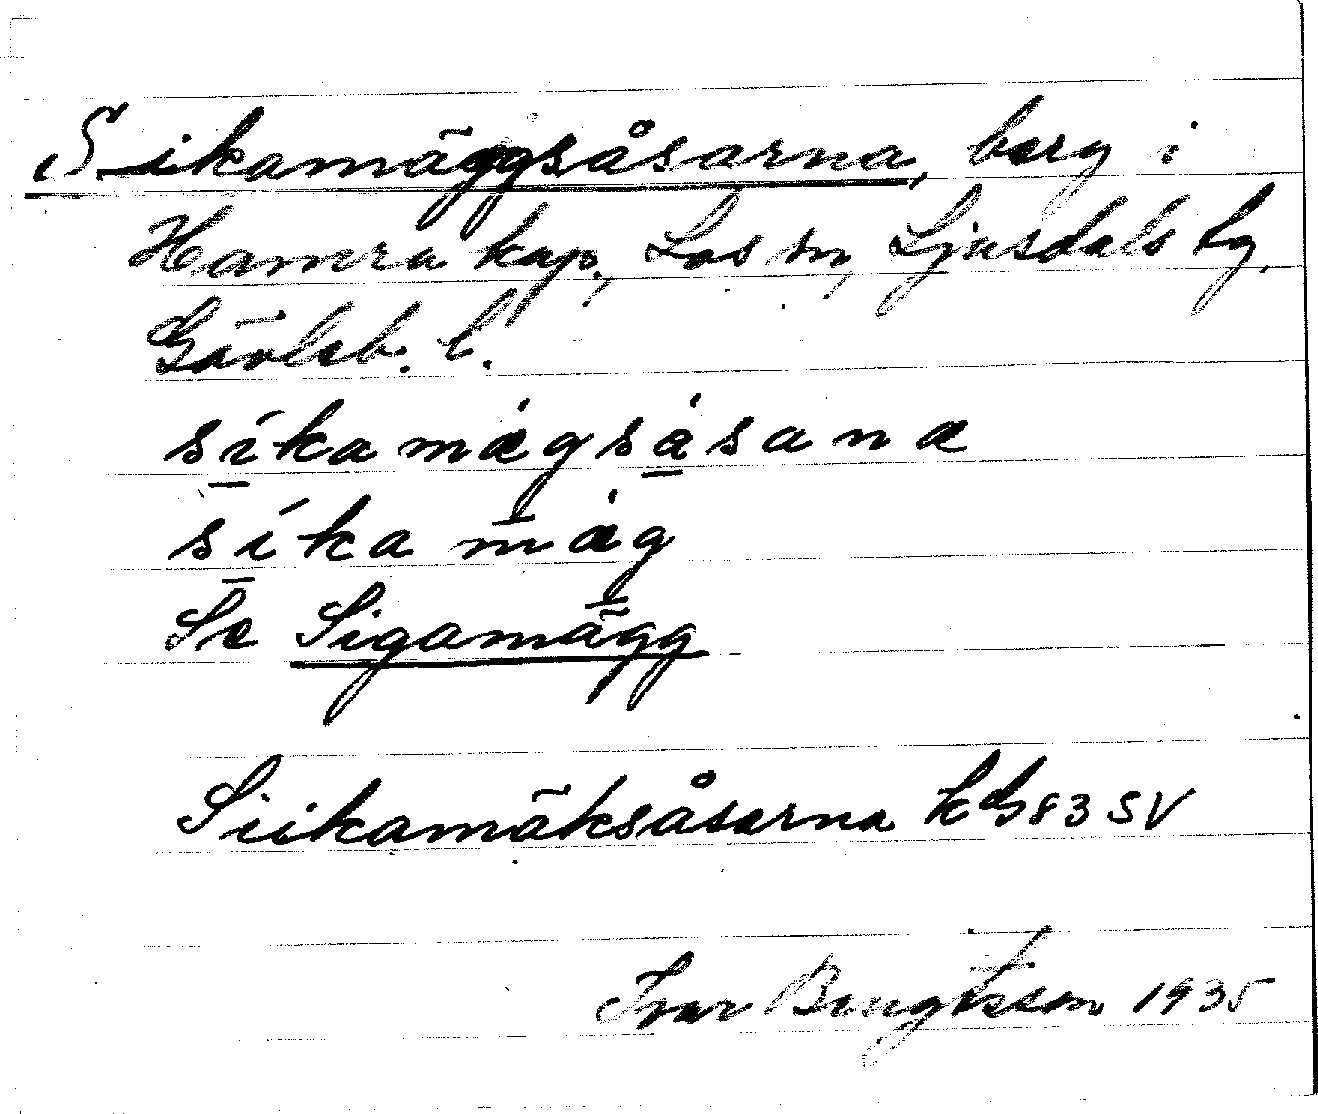 Sikamäggsåsarna, berg i
Hamra kap., Los sn, Ljusdals tg,
Gävleb. l.
síkamágsåsana
síka mág
Se Sigamägg
Siikamäksåsarna kbl 83 SV
Ivar Bengtsson 1935